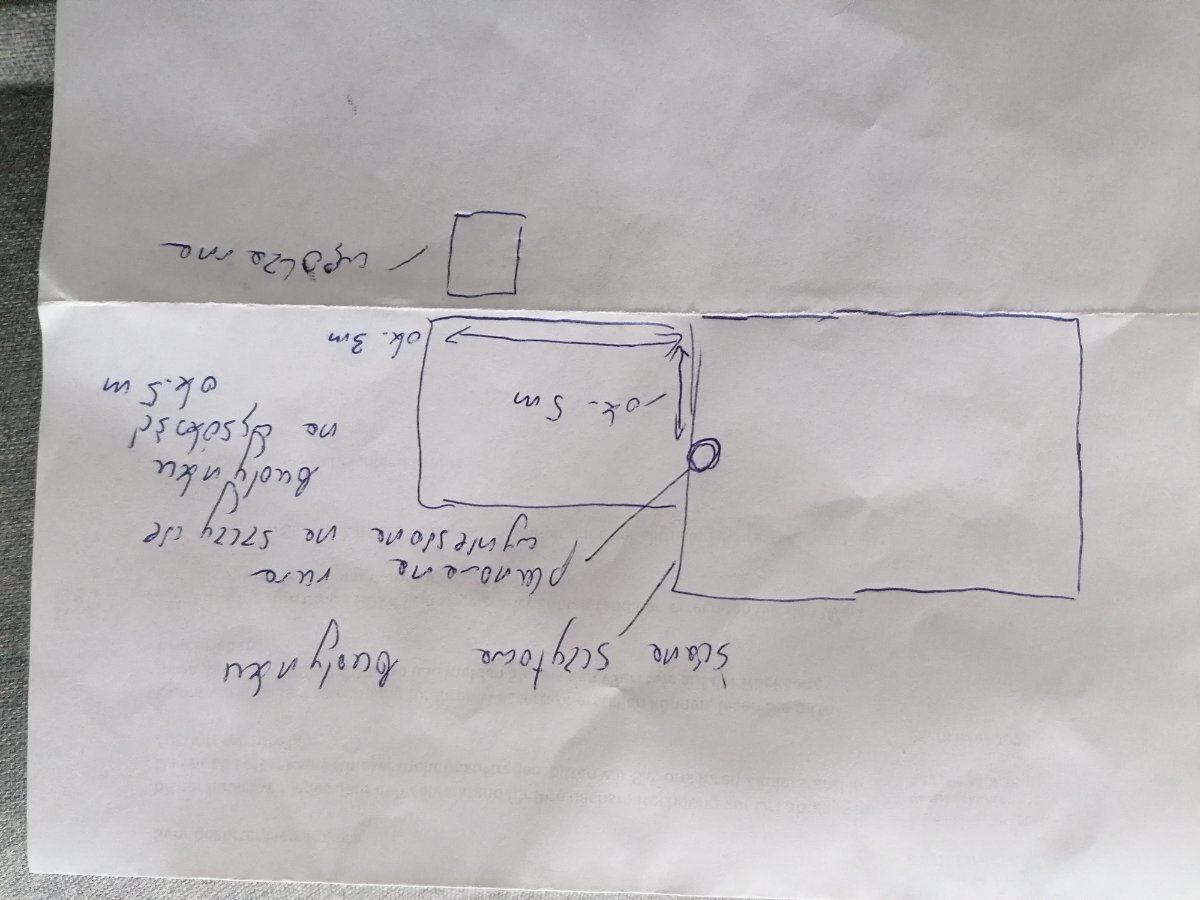 ściana szczytowa budynku
planowana rura
wyniesiona na szczycie
budynku
na wysokość
ok. 5 m
ok. 5m
ok. 3m
wędzarna